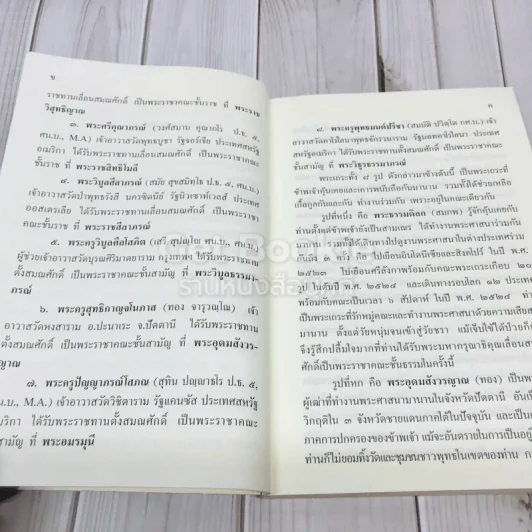 ข
ราชทานเลื่อนสมณศักดิ์ เป็นพระราชาคณะชั้นราช ที่ พระราช
วิสุทธิญาณ
๓. พระศรีคุณาภรณ์ (วงศ์สมาน คุณากโร ป.ธ. ๕,
ศน.บ., M.A) เจ้าอาวาสวัดพุทธบูชา รัฐจอร์เจีย ประเทศสหรัฐ
อเมริกา ได้รับพระราชทานเลื่อนสมณศักดิ์ เป็นพระราชาคณะ
ชั้นราช ที่ พระราชสิทธิโมลี
๔. พระวิบูลสีลาภรณ์ (สมัย สุขสมิทฺโธ ป.ธ. ๕,
เจ้าอาวาสวัดป่าพุทธรังสี นครซิดนีย์ รัฐนิวเซาท์เวลส์ ประเทศ
ออสเตรเลีย ได้รับพระราชทานเลื่อนสมณศักดิ์ เป็นพระราชา
คณะชั้นราช ที่ พระราชสีลาภรณ์
๕. พระครูวิบูลศีลโสภิต (เสวี ศน.บ., M.A.)
ผู้ช่วยเจ้าอาวาสวัดบุรณศิริมาตยาราม กรุงเทพฯ ได้รับพระราชทาน
ตั้งสมณศักดิ์ เป็นพระราชาคณะชั้นสามัญ ที่ พระวิบูลธรรมา-
ภรณ์
๖. พระครูสุทธิกาญจโนภาส (ทอง จารุวณฺโณ) เจ้า
อาวาสวัดหงสาราม อ.ปะนาเระ จ.ปัตตานี ได้รับพระราชทาน
ตั้งสมณศักดิ์ เป็นพระราชาคณะชั้นสามัญ ที่ พระอุดมสังวร-
ญาณ
๗. พระครูปัญญาภรณ์โสภณ (สุทิน ปญฺญาธโร ป.ธ. ๕,
ศน.บ., M.A.) เจ้าอาวาสวัดวิชิตาราม รัฐแคนซัส ประเทศสหรัฐ
อเมริกา ได้รับพระราชทานตั้งสมณศักดิ์ เป็นพระราชาคณะ
ชั้นสามัญ ที่ พระอมรมุนี
ค
๘. พระครูพุทธมนต์ปรีชา (สมบัติ ปวิตฺโต ศศ.บ.) เจ้า
อาวาสวัดคาโรไลนาพุทธจักรวนาราม รัฐนอทคาโรไลนา ประเทศ
สหรัฐอเมริกา ได้รับพระราชทานตั้งสมณศักดิ์ เป็นพระราชาคณะ
ชั้นสามัญ ที่ พระวิฐรธรรมาภรณ์
พระเถระทั้ง ๘ รูป ดังกล่าวมาข้างต้นนี้ เป็นพระเถระที่
ข้าพเจ้าคุ้นเคยและการพนับถือกันมานาน รวมทั้งได้ช่วยเหลือ
เกื้อกูลกันและกัน ทำงานร่วมกันมา เพราะอยู่ในคณะเดียวกัน
รูปที่หนึ่ง คือ พระธรรมดิลก (สมภพ) รู้จักคุ้นเคยกัน
มาตั้งแต่ข้าพเจ้ายังเป็นสามเณร ได้ทำงานพระศาสนาร่วมกัน
มานาน ทั้งได้เดินทางไปดูงานพระศาสนาในต่างประเทศร่วม
กันถึง ๓ ครั้ง คือ ไปเยือนอินโดนีเซียและสิงคโปร์ ในปี พ.ศ.
๒๕๒๓ ไปเยือนศรีลังกาพร้อมกับคณะพระเถระเกือบ
รูป ในต้นปี พ.ศ. ๒๕๒๔ และเดินทางรอบโลก ๑๒ ประเทศ
พร้อมกับคณะเป็นเวลา ๖ สัปดาห์ ในปี พ.ศ. ๒๕๒๔ ท่าน
เป็นพระเถระที่รักหมู่คณะและทำงานพระศาสนาด้วยความเสียสละ
มานาน ตั้งแต่วัยหนุ่มจนเข้าสู่วัยชรา แม้เจ็บไข้ได้ป่วยก็
จึงรู้สึกปลื้มใจมากที่ท่านได้รับพระมหากรุณาธิคุณเลื่อนสมณ
ศักดิ์เป็นพระราชาคณะชั้นธรรมในครั้งนี้
รูปที่หก คือ พระอุดมสังวรญาณ (ทอง) เป็นพระ
ผู้เฒ่าที่ทำงานพระศาสนามานานในจังหวัดปัตตานี อันเป็น
วิกฤติใน ๓ จังหวัดชายแดนภาคใต้ในปัจจุบัน และเป็น
ภาคการปกครองของข้าพเจ้า แม้จะอันตรายในการเป็นอยู่
ท่านก็ไม่ยอมทิ้งวัดและชุมชนชาวพุทธในเขตของท่าน
ร้านหนังสือ